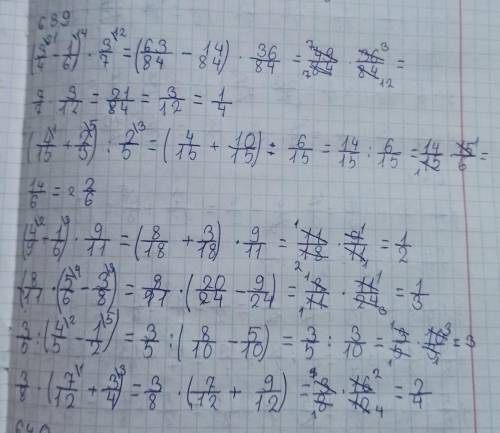 639
(3/4 ^21 - 1/6 ^14) · 3/7 ^12 = (63/84 - 14/84) · 36/84 = 49/84 · 36/84 =
7/7 · 3/12 = 21/84 = 3/12 = 1/4
(4/15 + 2/3 ^5) : 2/5 ^3 = (4/15 + 10/15) : 6/15 = 14/15 : 6/15 = 14/15 · 15/6 =
14/6 = 2 2/6
(4/9 ^2 + 1/6 ^3) · 9/11 = (8/18 + 3/18) · 9/11 = 11/18 · 9/11 = 1/2
8/11 · (5/6 ^4 - 3/8 ^3) = 8/11 · (20/24 - 9/24) = 8/11 · 11/24 = 1/3
3/5 : (4/5 ^2 - 1/2 ^5) = 3/5 : (8/10 - 5/10) = 3/5 : 3/10 = = 3
3/8 · (7/12 ^1 + 3/4 ^3) = 3/8 · (7/12 + 9/12) = 3/8 · 16/12 = 2/4
640